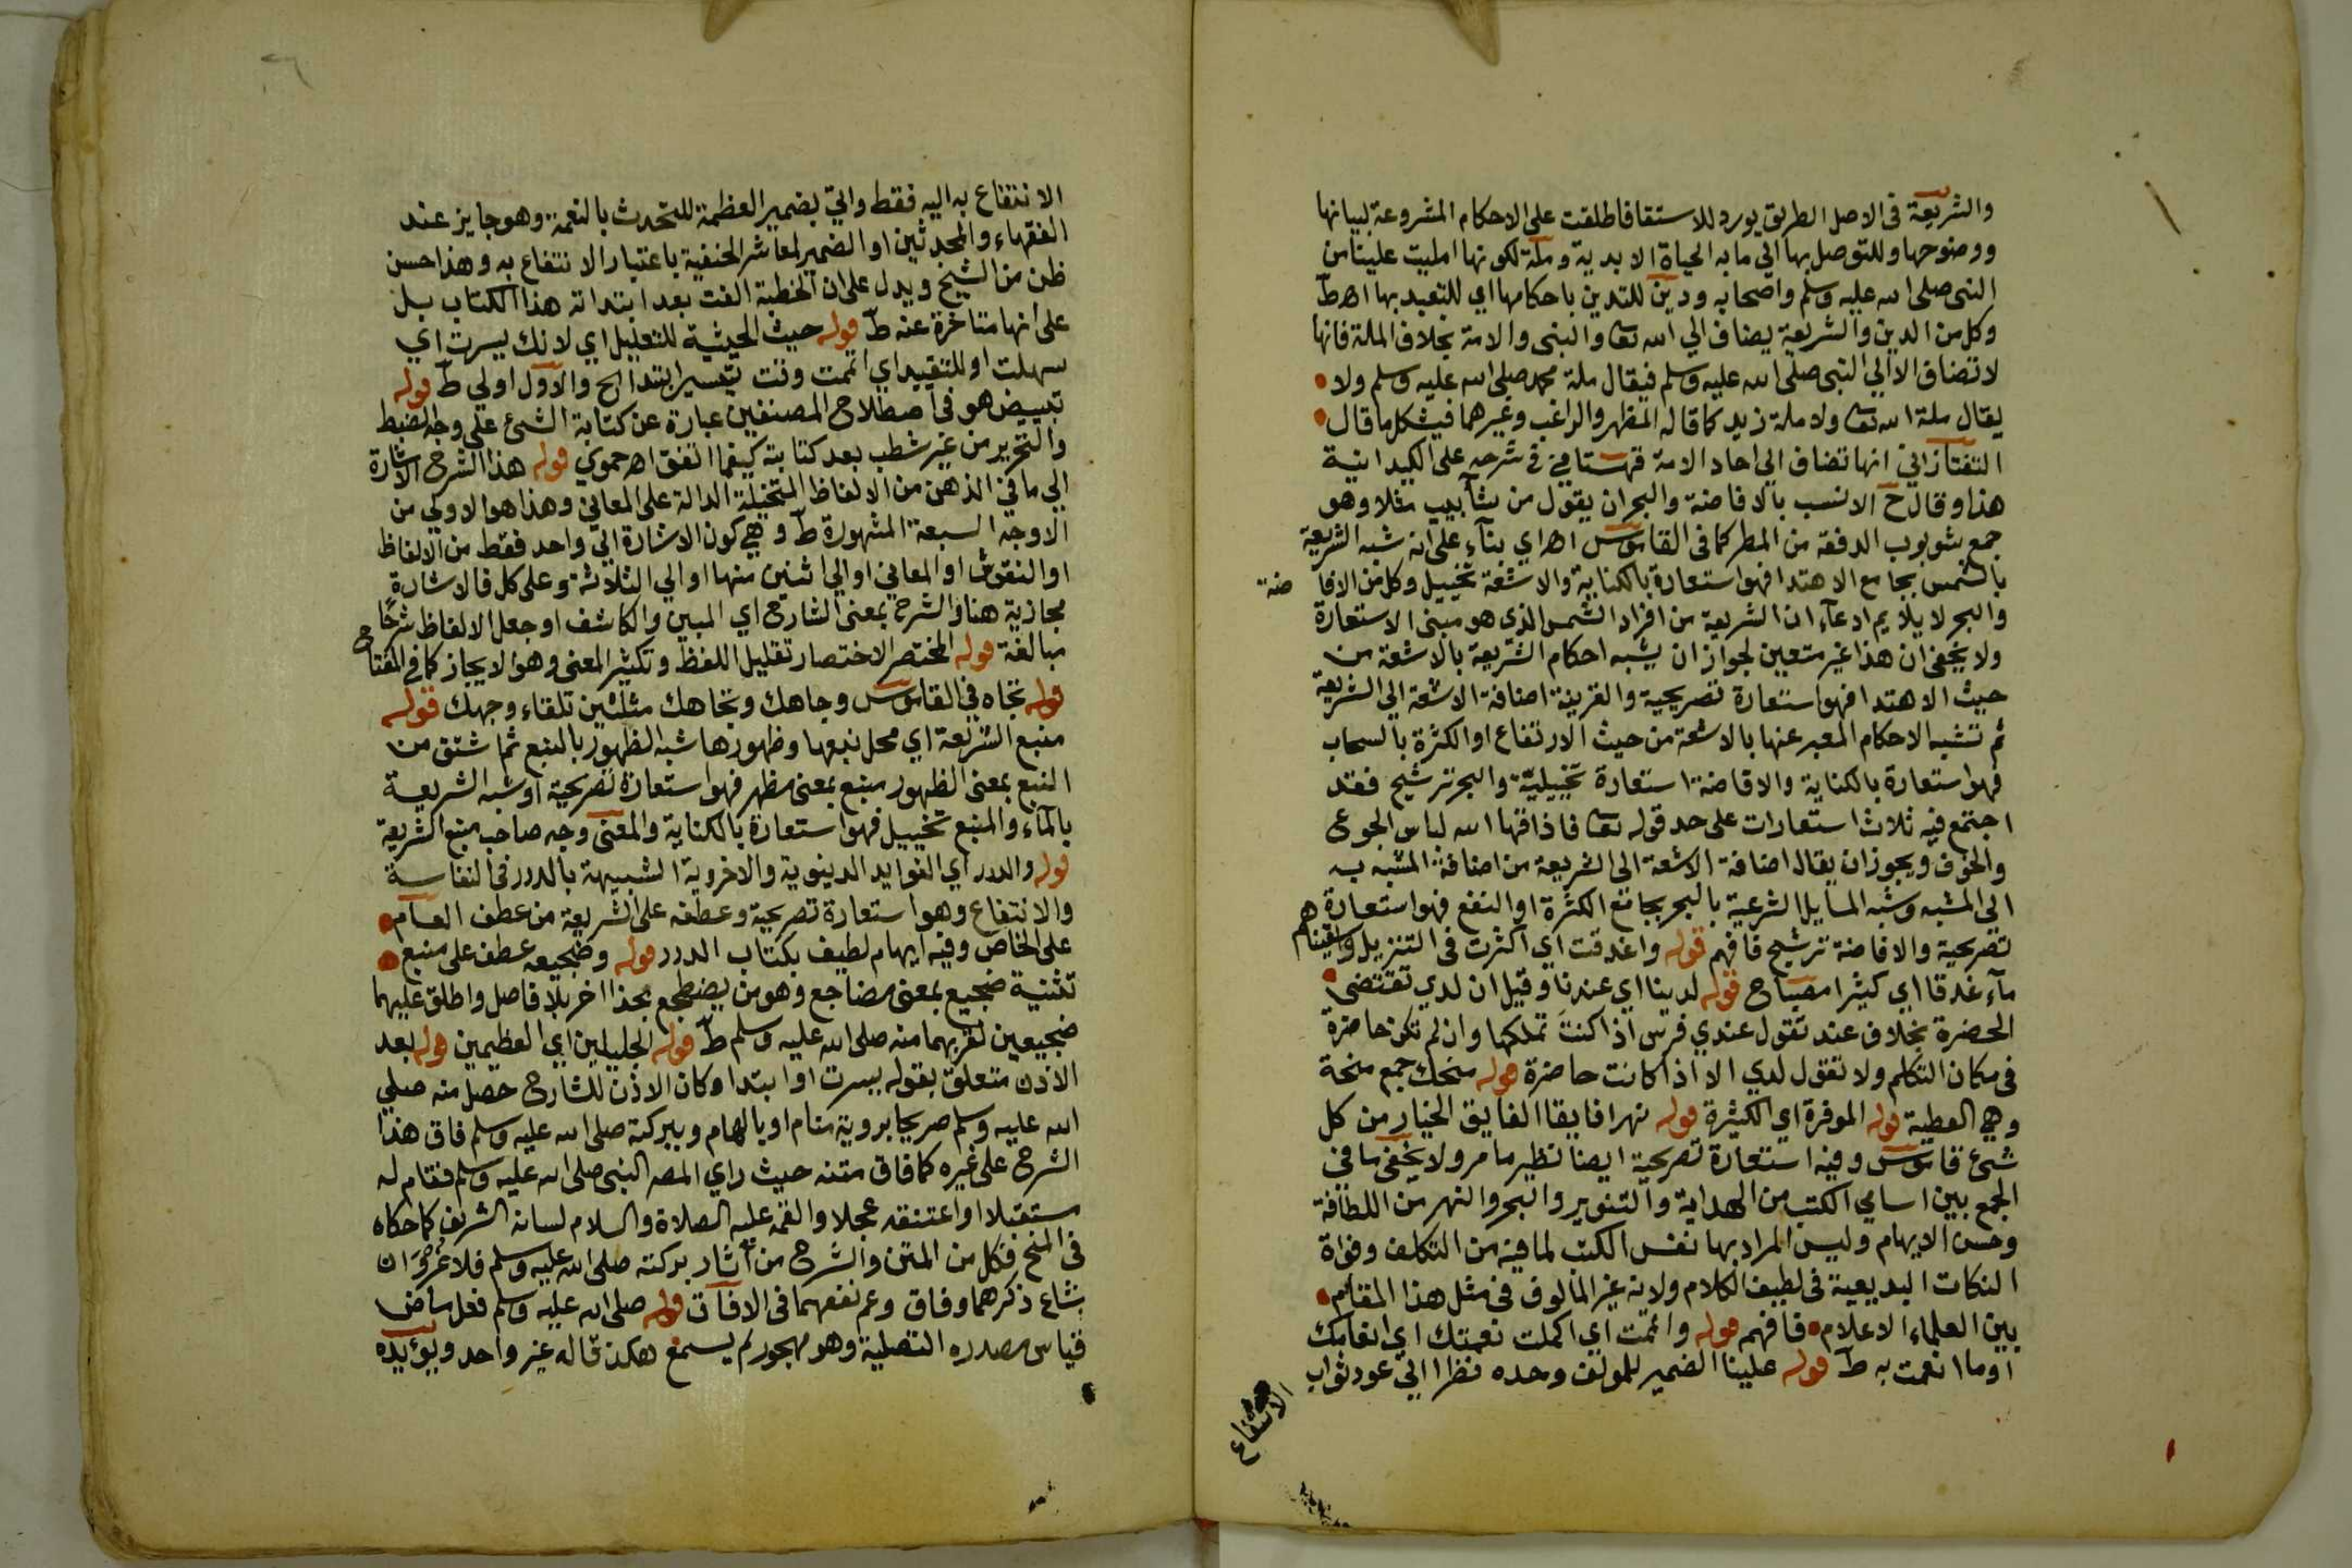 والشريعة فى الاصل الطريق يورد للاستقا فاطلقت على الاحكام المشروعة لبيانها
ووضوحها وللتوصل بها الي ما به الحياة الابدية وملة لكونها امليت علينا من
النبى صلى الله عليه وسلم واصحابه ودين للتدين باحكامها اي للتعبد بها اھ ط
وكل من الدين والشريعة يضاف الي الله تعا والنبى والامة بخلاف الملة فانها
لا تضاف الا الي النبى صلى الله عليه وسلم فيقال ملة محمد صلى الله عليه وسلم ولا
يقال ملة الله تعا ولا ملة زيد كما قاله المظهر والراغب وغيرهما فيشكل ما قال
التفتازاني انها تضاف الي احاد الامة قهستاني في شرحه على الكيدانية
هذا وقال ح الانسب بالافاضة والبحر ان يقول من شآبيب مثلا وهو
جمع شوبوب الدفعة من المطر كما فى القاموس اھ اي بنآء على انه شبه الشريعة
بالشمس بجامع الاهتدا فهو استعارة بالكناية والاشعة تخييل وكل من الافاضة
والبحر لا يلايم ادعآء ان الشريعة من افراد الشمس الذي هو مبنى الاستعارة
ولا يخفى ان هذا غير متعين لجواز ان يشبه احكام الشريعة بالاشعة من
حيث الاهتدا فهو استعارة تصريحية والقرينة اضافة الاشعة الي الشريعة
ثم تشبه الاحكام المعبر عنها بالاشعة من حيث الارتفاع او الكثرة بالسحاب
فهو استعارة بالكناية والافاضة استعارة تخييلية والبحر ترشيح فقد
اجتمع فيه ثلاث استعارات على حد قوله تعا فاذاقها الله لباس الجوع
والخوف ويجوز ان يقال اضافة الاشعة الى الشريعة من اضافة المشبه به
الى المشبه وشبه المسايل الشرعية بالبحر بجامع الكثرة او النفع فهو استعارة
تصريحية والافاضة ترشيح فافهم قوله واغدقت اي اكثرت فى التنزيل واسقيناهم
مآء غدقا اي كثيرا مصباح قوله لدينا اي عندنا وقيل ان لدي تقتضى
الحضرة بخلاف عند تقول عندي فرس اذا كنت تملكها وان لم تكن حاضرة
فى مكان التكلم ولا تقول لدي الا اذا كانت حاضرة قوله منحك جمع منحة
وهي العطية قوله الموفرة اي الكثيرة قوله نهرا فايقا الفايق الخيار من كل
شئ قاموس وفيه استعارة تصريحية ايضا نظير ما مر ولا يخفى ما في
الجمع بين اسامي الكتب من الهداية والتنوير والبحر والنهر من اللطافة
وحسن الايهام وليس المراد بها نفس الكتب لما فيه من التكلف وفواة
النكات البديعية فى لطيف الكلام ولانه غير المالوف فى مثل هذا المقام
بين العلماء الاعلام فافهم قوله واتممت اي اكملت نعمتك اي انعامك
او ما انعمت به ط قوله علينا الضمير للمولف وحده نظرا الي عود ثواب
الانتفاع
الانتفاع به اليه فقط واتي بضمير العظمة للتحدث بالنعمة وهو جايز عند
الفقهاء والمحدثين او الضمير لمعاشر الحنفية باعتبار الانتفاع به وهذا حسن
ظن من الشيخ ويدل على ان الخطبة الفت بعد ابتدائه هذا الكتاب بل
على انها متاخرة عنه ط قوله حيث الحيثية للتعليل اي لانك يسرت اي
سهلت او للتقييد اي اتممت وقت تيسير ابتدا الخ والاول اولي ط قوله
تبييض هو فى اصطلاح المصنفين عبارة عن كتابة الشئ على وجه الضبط
والتحرير من غير شطب بعد كتابته كيفما اتفق اھ حموي قوله هذا الشرح الاشارة
الي ما في الذهن من الالفاظ المتخيلة الدالة على المعاني وهذا هو الاولي من
الاوجه السبعة المشهورة ط وهي كون الاشارة الي واحد فقط من الالفاظ
او النقوش او المعاني او الي اثنين منها او الي الثلاثة وعلى كل فالاشارة
مجازية هنا والشرح بمعنى الشارح اي المبين والكاشف او جعل الالفاظ شرحا
مبالغة قوله المختصر الاختصار تقليل اللفظ وتكثير المعنى وهو الايجاز كما في المفتاح
قوله تجاه في القاموس وجاهك وتجاهك مثلثين تلقاء وجهك قوله
منبع الشريعة اي محل نبعها وظهورها شبه الظهور بالنبع ثم اشتق من
النبع بمعنى الظهور منبع بمعنى مظهر فهو استعارة تصريحية او شبه الشريعة
بالمآء والمنبع تخييل فهو استعارة بالكناية والمعنى وجه صاحب منبع الشريعة
قوله والدرر اي الفوايد الدينوية والاخروية الشبيهة بالدرر فى النفاسة
والانتفاع وهو استعارة تصريحية وعطفه على الشريعة من عطف العام
على الخاص وفيه ايهام لطيف بكتاب الدرر قوله وضجيعيه عطف على منبع
تثنية ضجيع بمعنى مضاجع وهو من يضطجع بحذا اخر بلا فاصل واطلق عليهما
ضجيعين لقربهما منه صلى الله عليه وسلم ط قوله الجليلين اي العظيمين قوله بعد
الاذن متعلق بقوله يسرت او ابتدا وكان الاذن للشارح حصل منه صلي
الله عليه وسلم صريحا بروية منام او بالهام وببركته صلى الله عليه وسلم فاق هذا
الشرح على غيره كما فاق متنه حيث راي المصه النبى صلى الله عليه وسلم فقام له
مستقبلا واعتنقه عجلا والقمه عليه الصلاة والسلام لسانه الشريف كما حكاه
فى المنح فكل من المتن والشرح من آثار بركته صلى الله عليه وسلم فلا غرو ان
شاع ذكرهما وفاق وعم نفعهما فى الافاق قوله صلى الله عليه وسلم فعل ماض
قياس مصدره التصلية وهو مهجور لم يسمع هكذا قاله غير واحد ويؤيده